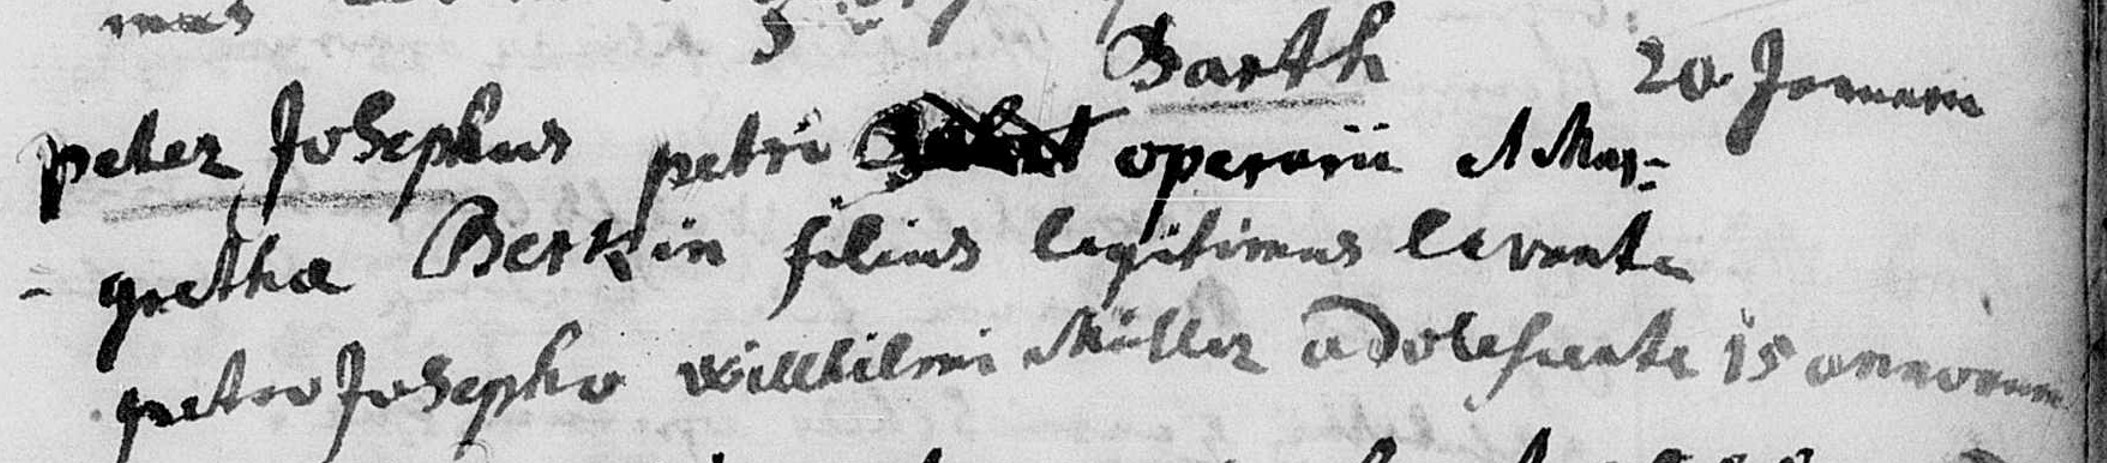 mus
Barth 20 Januarii
peter Josephus petri operarii et Mar=
= gretha Berkin filius legitimus levante
petro Josepho Willhilmi Müller adolescente 15 annorum